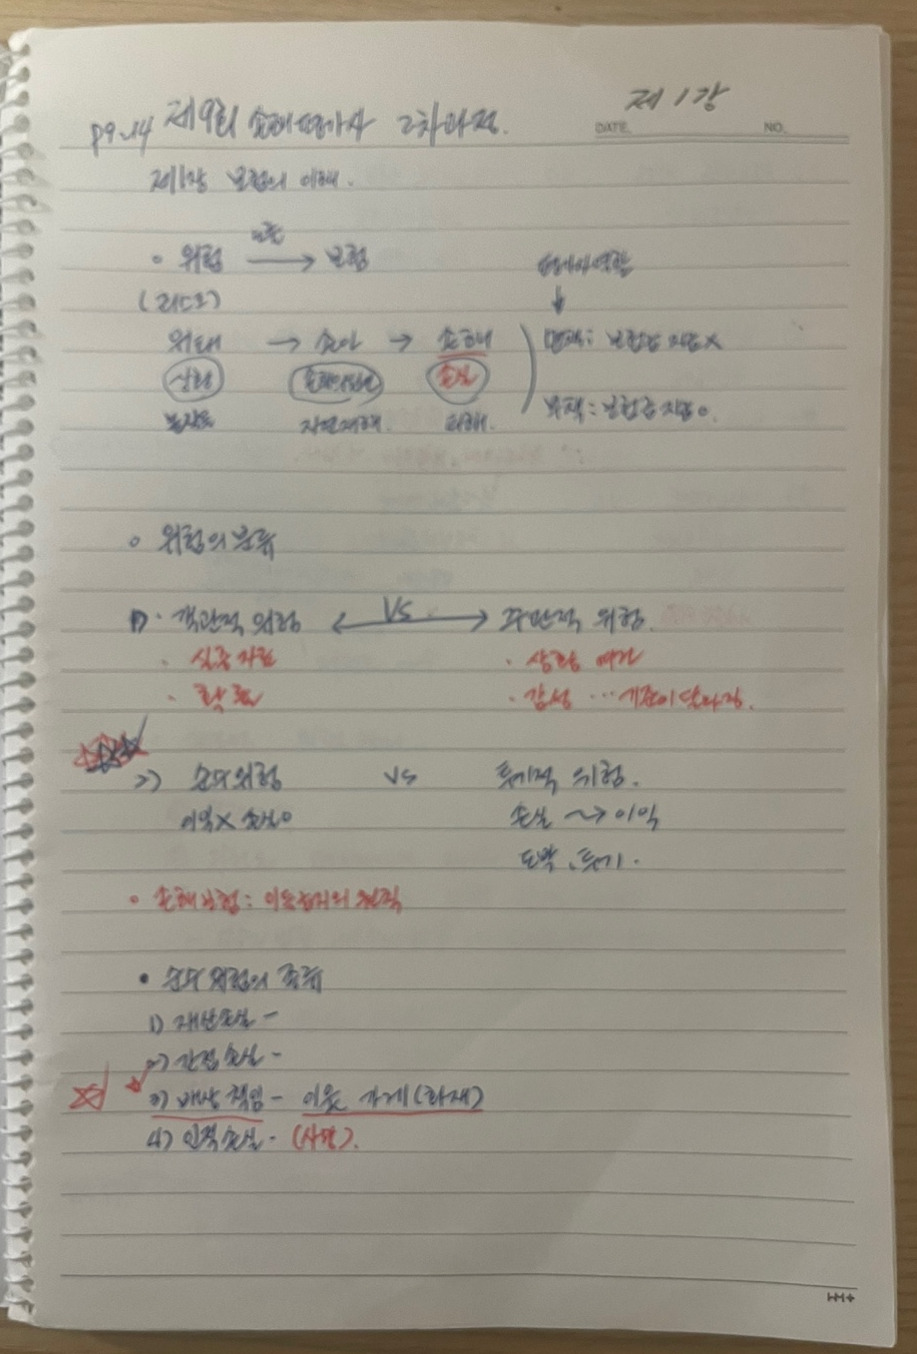 제1강
DATE. NO.
P9~14 제9회 손해평가사 2차과정.
제1장 보험의 이해.
위험 → 보험
(리스크)
평가사역할
위태 → 손인 → 손해
면책: 보험금 지급X
상황 손실
자연재해. 피해.
부책: 보험금 지급o.
위험의 분류
1). 객관적 위험 ← VS → 주관적 위험.
· 실증자료 · 상황
· 확률 · 감성 … 기준이 달라짐.
2) 순수위험 VS 투기적 위험.
이익X 손실o 손실 ~→ 이익
도박, 투기.
손해보험: 이득금지의 원칙
• 순수위험의 종류
1) 재산손실 -
2) 간접손실 -
3) 배상책임 - 이웃 가게(화재)
4) 인적손실 - (사망).